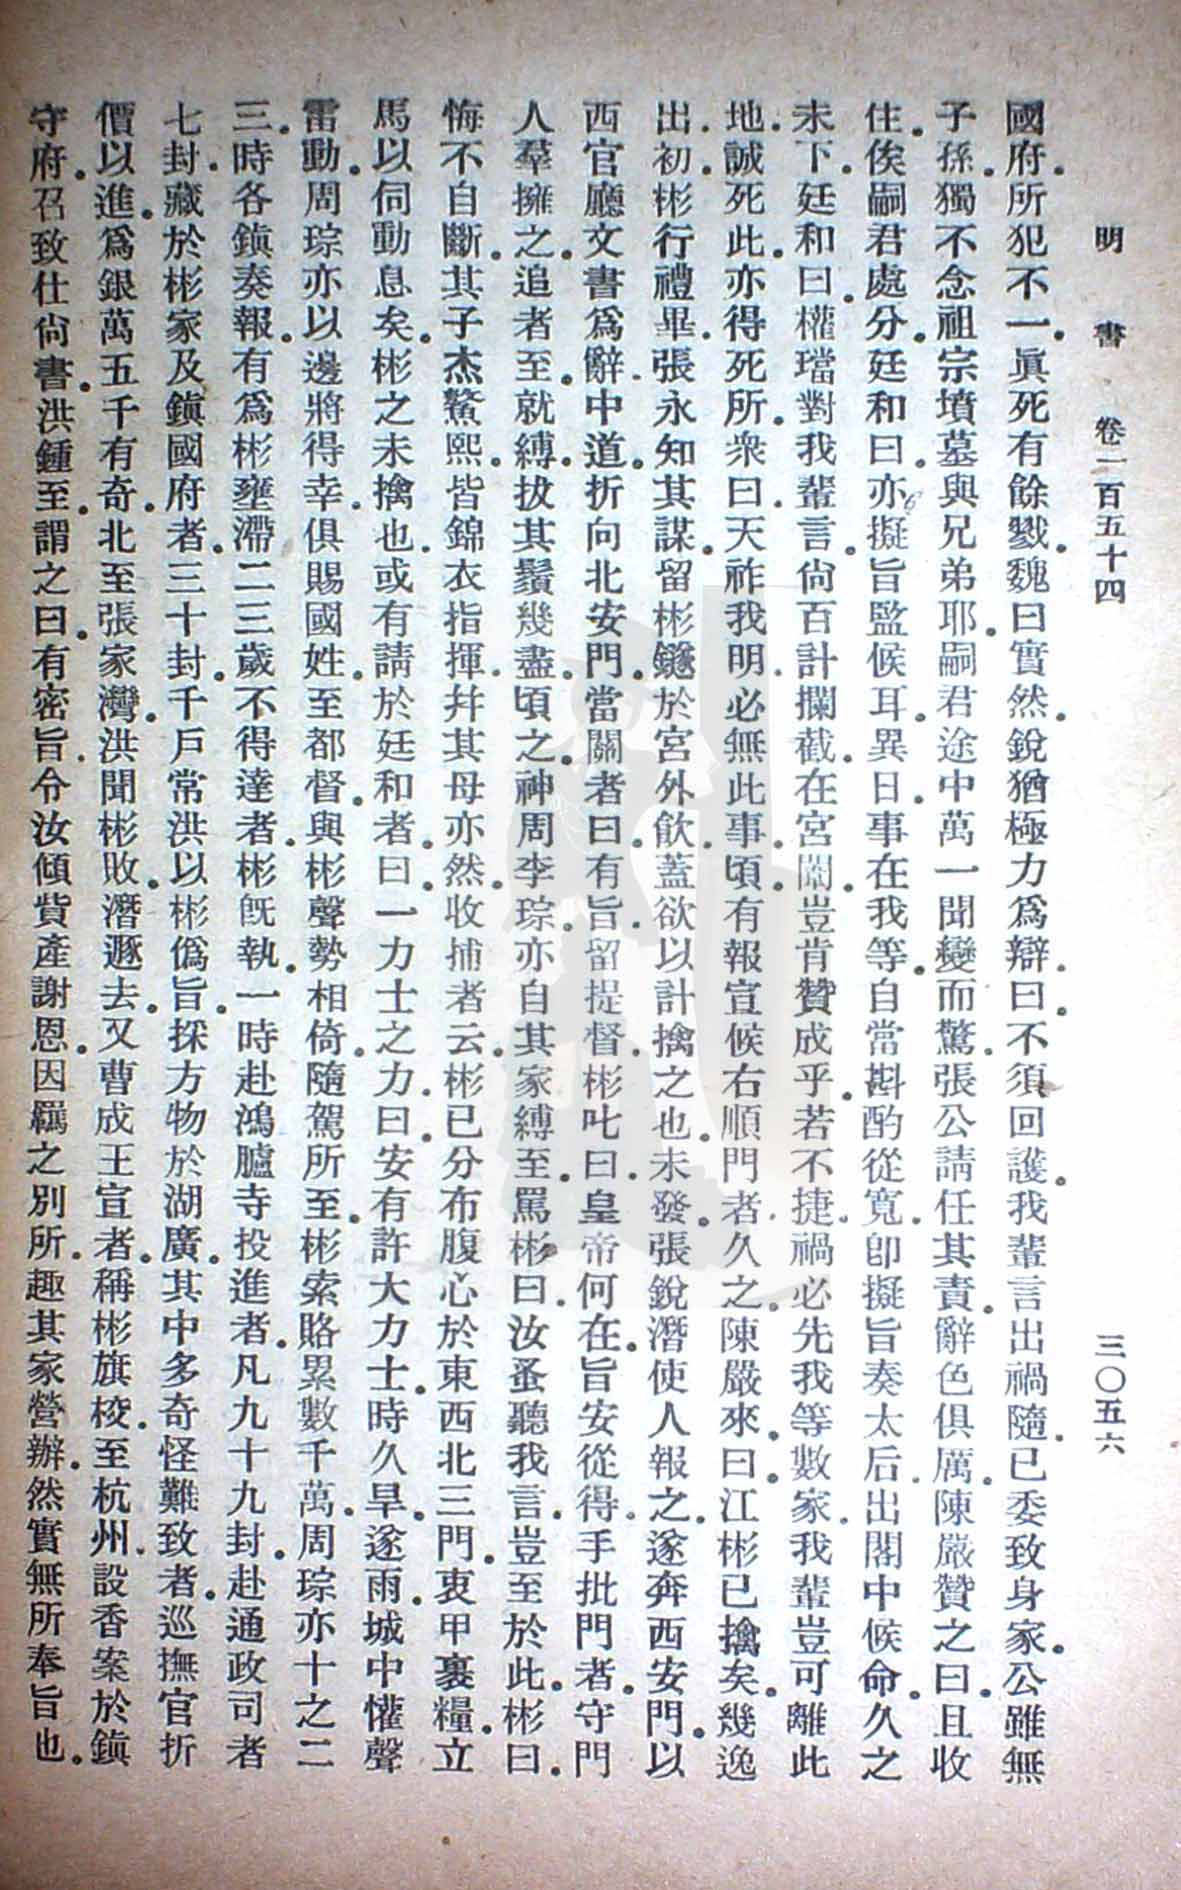 明書 卷一百五十四 三〇五六
國府所犯不一。眞死有餘戮。魏曰實然。銳猶極力爲辯。曰不須回護。我輩言出禍隨。已委致身家。公雖無
子孫。獨不念祖宗墳墓與兄弟耶。嗣君途中萬一聞變而驚。張公請任其責。辭色俱厲。陳嚴贊之曰。且收
住。俟嗣君處分。廷和曰。亦擬旨監候耳。異日事在我等。自當斟酌從寬。卽擬旨奏太后。出閣中候命。久之
未下。廷和曰。權璫對我輩言。尙百計攔截。在宮闈。豈肯贊成乎。若不捷。禍必先我等數家。我輩豈可離此
地。誠死此。亦得死所。衆曰。天祚我明。必無此事。頃有報宣候右順門者。久之。陳嚴來。曰。江彬已擒矣。幾逸
出。初。彬行禮畢。張永知其謀。留彬鐩於宮外飮。蓋欲以計擒之也。未發。張銳潛使人報之。遂奔西安門。以
西官廳文書爲辭。中道。折向北安門。當關者曰。有旨。留提督。彬叱曰。皇帝何在。旨安從得。手批門者。守門
人羣擁之。追者至。就縛。拔其鬚幾盡。頃之。神周李琮。亦自其家縛至。罵彬曰。汝蚤聽我言。豈至於此。彬曰。
悔不自斷。其子杰鰲熙。皆錦衣指揮。幷其母亦然。收捕者云。彬已分布腹心於東西北三門。衷甲裹糧。立
馬以伺動息矣。彬之未擒也。或有請於廷和者。曰。一力士之力。曰。安有許大力士。時久旱。遂雨。城中懽聲
雷動。周琮亦以邊將得幸。俱賜國姓。至都督。與彬聲勢相倚。隨駕所至。彬索賂累數千萬。周琮亦十之二
三。時各鎭奏報。有爲彬壅滯二三歲不得達者。彬旣執。一時赴鴻臚寺投進者。凡九十九封。赴通政司者
七封。藏於彬家及鎭國府者。三十封。千戶常洪以彬僞旨。採方物於湖廣。其中多奇怪難致者。巡撫官折
價以進。爲銀萬五千有奇。北至張家灣。洪聞彬敗。潛遯去。又曹成王宣者。稱彬旗校。至杭州。設香案於鎭
守府。召致仕尙書。洪鍾至。謂之曰。有密旨。令汝傾貲產謝恩。因羈之別所。趣其家營辦。然實無所奉旨也。